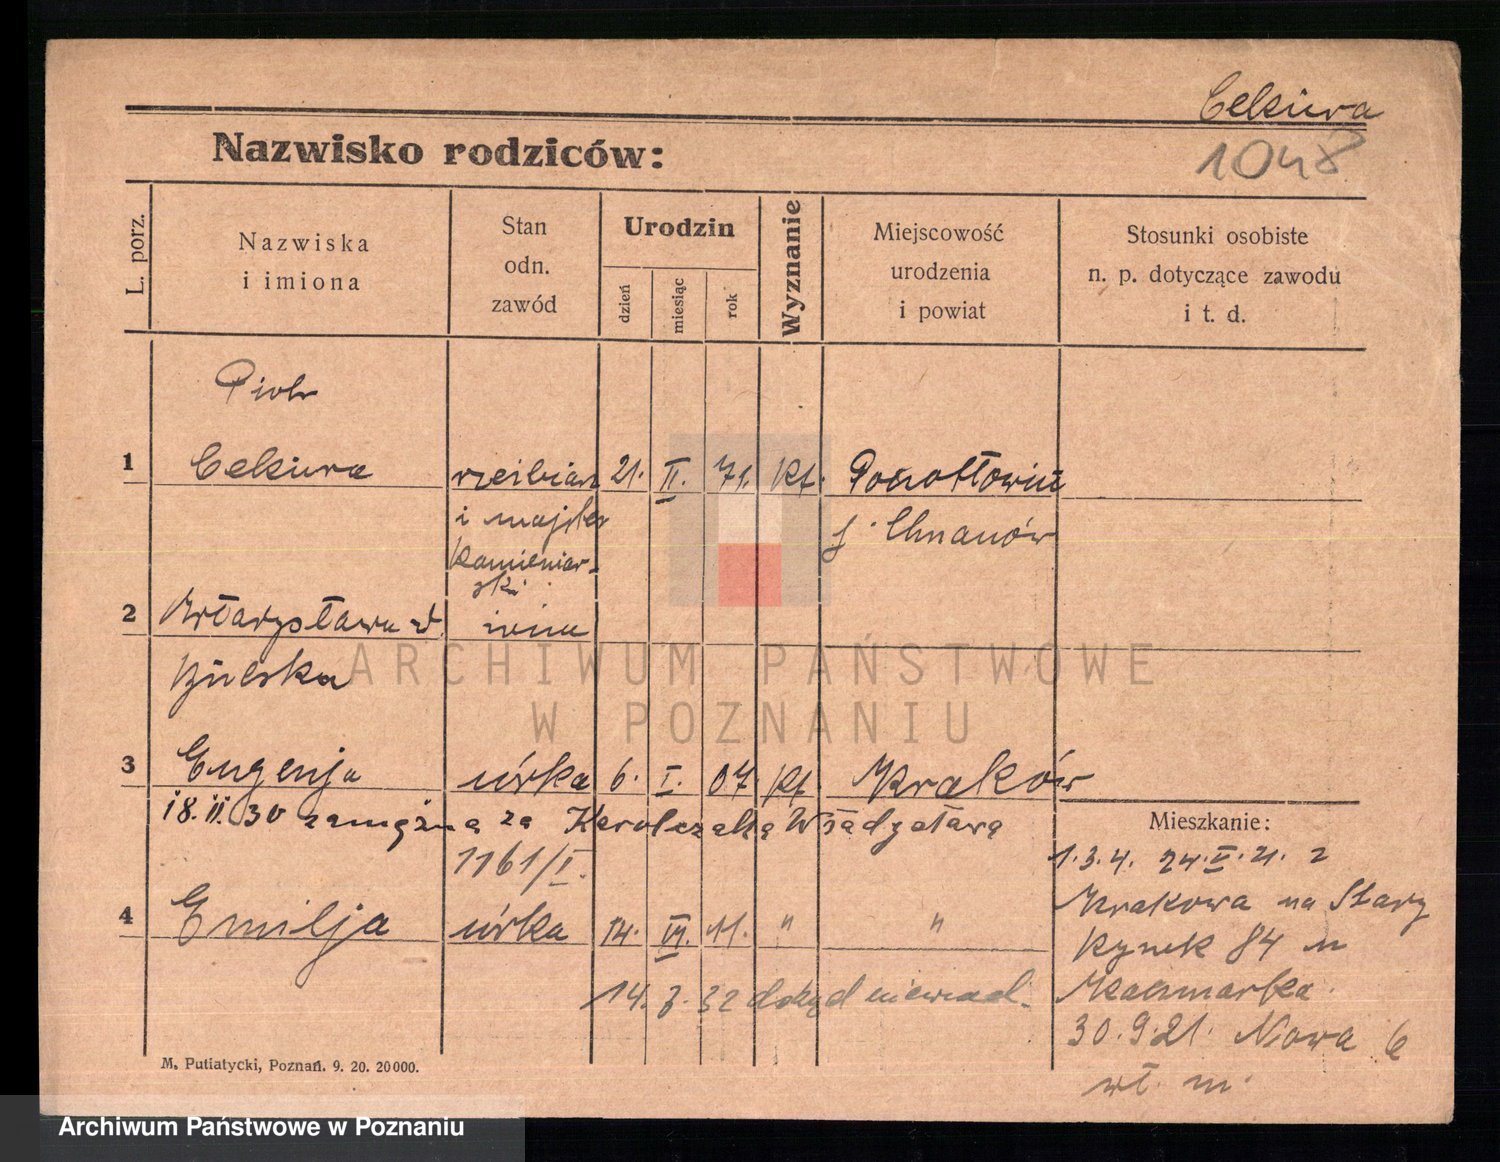 Cekiera
1048
Nazwisko rodziców:
L. porz.
Nazwiska
i imiona
Stan
odn.
zawód
Urodzin
dzień
miesiąc
rok
Wyznanie
Miejscowość
urodzenia
i powiat
Stosunki osobiste
n. p. dotyczące zawodu
i t. d.
Piotr
1 Cekiera rzeźbiarz 21. II. 71. kt.
i majster
kamieniar-
ski
j. Chrzanów
2 Władysława
3 Eugenja córka 6. I. 07. kt. Kraków
18. II. 30 zamężna za Karolczaka Władysława
1161/I.
Mieszkanie:
1. 3. 4. 24. 21. z
4 Emilja córka 14. VI. 11. " "
Krakowa na Stary
Rynek 84 u
Kaczmarka.
14. 3. 32 dokąd niewiad.
30. 9. 21. Nowa 6
wł. m.
M. Putiatycki, Poznań. 9. 20. 20000.
ARCHIWUM PAŃSTWOWE
W POZNANIU
Archiwum Państwowe w Poznaniu